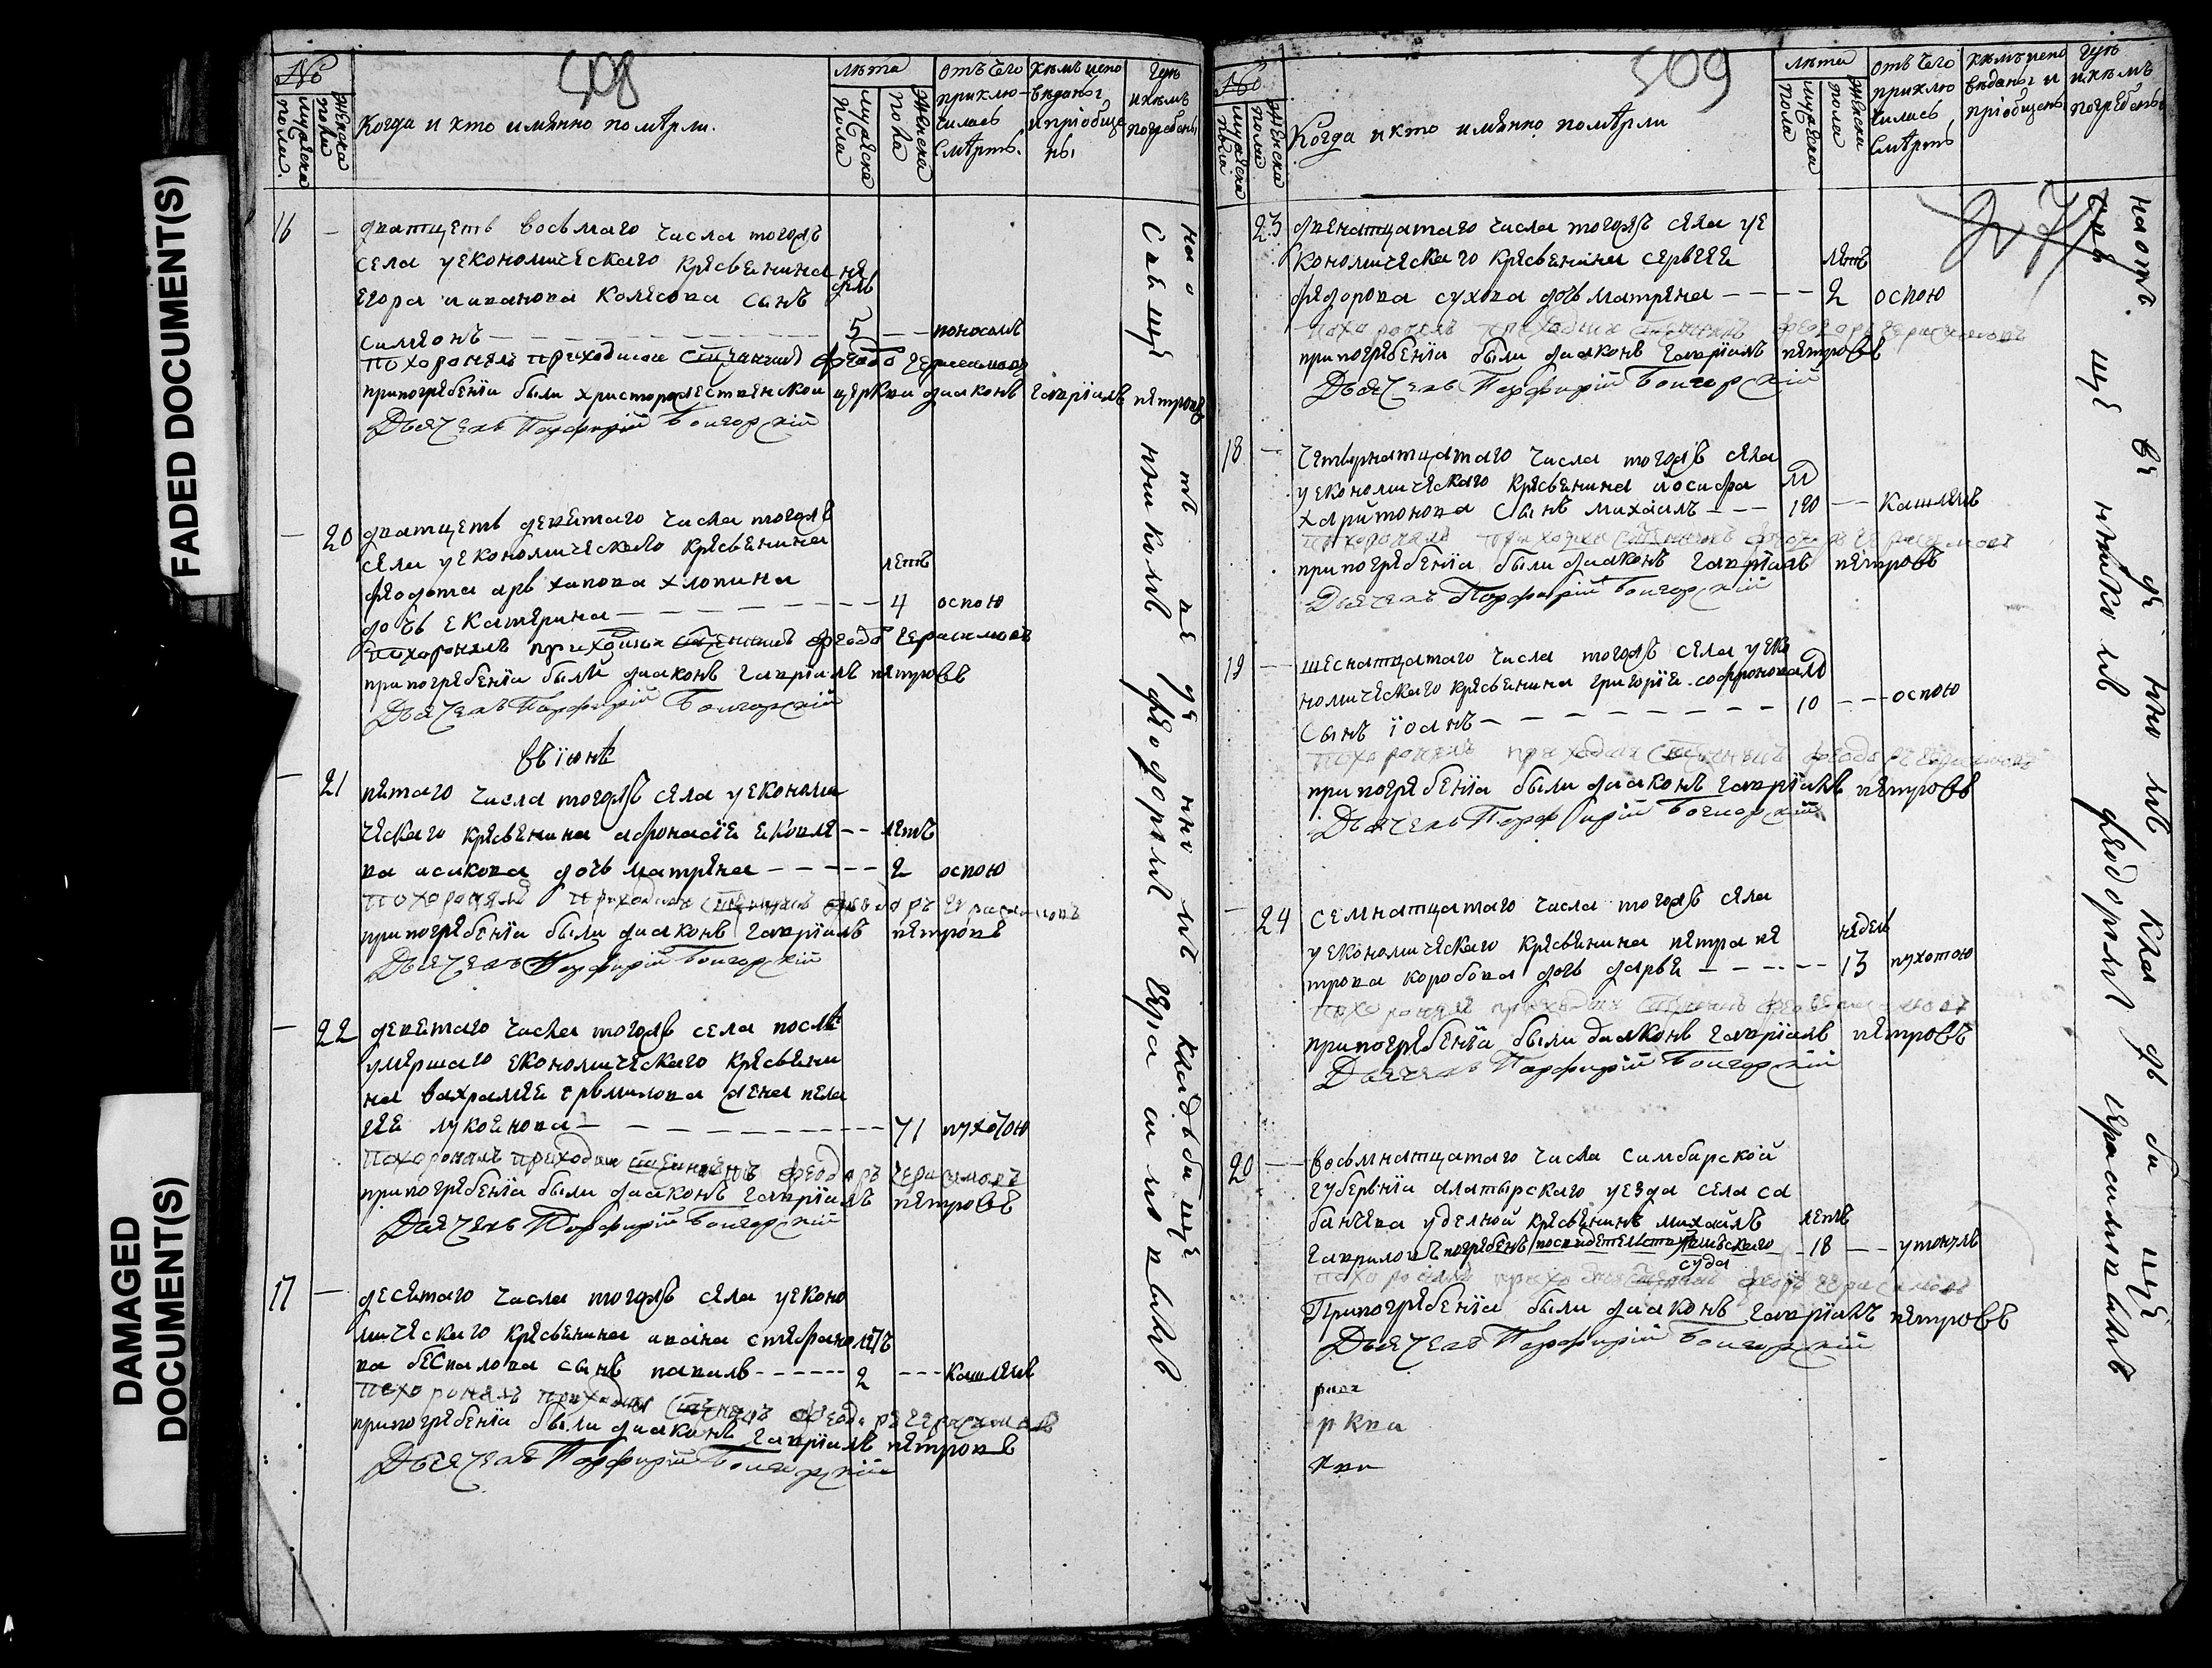 FADED DOCUMENT(S)
DAMAGED DOCUMENT(S)
508
№
мужска пола.
женска пола
Когда и кто имянно помѣрли.
лѣта
мужска пола
женска пола
отъ чего приклю-чилась смѣрть.
кѣмъ испо вѣданы и приобще ны
где и кѣмъ погребены
16 — дватцеть восьмаго числа тогожъ
села у економическаго крестьянина не
дель
егора иванова колесова сынъ
симеонъ — 5 — — поносомъ
похоронялъ приходскои священникъ феодо герасимовъ
припогребениїа были христорождественскои церкви диаконъ гавриїлъ петровъ
Дьячекъ Порфирій Боигорскій
— 20 дватцеть деветаго числа тогожъ
села у економическаго крестьянина
летъ
федота архипова хлопина
дочь екатерина — 4 оспою
похоронялъ приходскои священникъ феодо герасимовъ
припогребениїа были диаконъ гавриїлъ петровъ
Дьячекъ Порфирій Боигорскій
въ їюнѣ
— 21 петаго числа тогожъ села у економи
ческаго крестьянина афонасїе яковле — — летъ
ва исакова дочь матрена — 2 оспою
похоронялъ приходскои священникъ феодоръ герасимовъ
припогребениїа были диаконъ гавриїлъ петровъ
Дьячекъ Порфирій Боигорскій
— 22 деветаго числа тогожъ села после
умершаго економическаго крестьяни
на вахрамеe ермилова жена пела
гея лукоянова — 71 сухотою
похоронялъ приходскои священникъ феодоръ герасимовъ
припогребениїа были диаконъ гавриїлъ петровъ
Дьячекъ Порфирій Боигорскій
17 — десятаго числа тогожъ села у еконо
мическаго крестьянина ивана стефано летъ
ва беспалова сынъ павилъ — 2 — кашлемъ
похоронялъ приходскои священникъ феодоръ герасимовъ
припогребениїа были диаконъ гавриїлъ петровъ
Дьячекъ Порфирій Боигорскій
на отведенномъ кладбище
священникомъ феодоромъ герасимовымъ
509
№
мужска пола
женска пола
Когда и кто имянно помѣрли
лѣта
мужска пола
женска пола
отъ чего приклю чилась смѣрть
кѣмъ испо вѣданы и приобщены
где и кѣмъ погребены
23 двенатцатаго числа тогожъ села у е
кономическаго крестьянина сергея летъ
федорова сухова дочь матрена — — — 2 оспою
похоронялъ приходскои священникъ феодоръ герасимовъ
припогребениїа были диаконъ гавриїлъ петровъ
Дьячекъ Порфирій Боигорскій
18 — четырнатцатаго числа тогожъ села
у економическаго крестьянина иосифа
харитонова сынъ михаилъ — — кашлямъ
похоронялъ приходскои священникъ феодоръ герасимовъ
припогребениїа были диаконъ гавриїлъ петровъ
Дьячекъ Порфирій Боигорскій
19 — шеснатцатаго числа тогожъ села у еко
номическаго крестьянина григорїе софронова
сынъ їоанъ — 10 — — оспою
похоронялъ приходскои священникъ феодоръ герасимовъ
припогребениїа были диаконъ гавриїлъ петровъ
Дьячекъ Порфирій Боигорскій
— 24 семнатцатаго числа тогожъ села
у економическаго крестьянина петра пе недель
трова коробова дочь дарья — 13 сухотою
похоронялъ приходскои священникъ
припогребениїа были диаконъ гавриїлъ петровъ
Дьячекъ Порфирій Боигорскій
20 — восьмнатцатаго числа симбирской
губернїи алатырскаго уезда села са
банчева уделной крестьянинъ михаилъ летъ
гавриловъ погребенъ посвидетельству земъскаго суда — 18 — утонулъ
похоронялъ приходскои священникъ герасимовъ
Припогребениїа были диаконъ гавриїлъ петровъ
Дьячекъ Порфирій Боигорскій
на отведенномъ кладбище
священникомъ феодоромъ герасимовымъ